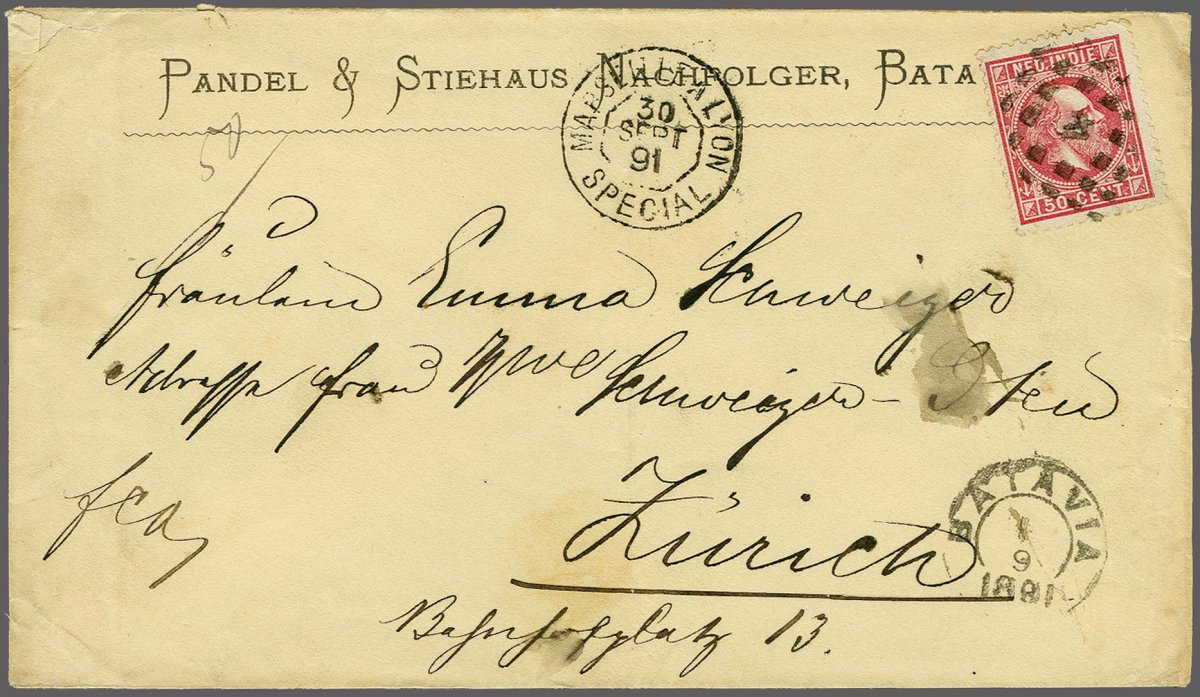 PANDEL & STIEHAUS NACHFOLGER, BATA
NED. INDIE
50 CENT.
MARSEILLE A LYON
30
SEPT
91
SPECIAL
50
Fräulein Emma Schweizer
Adresse Frau Wwe Schweizer-
Zürich
Bahnhofplatz 13.
fco
BATAVIA
1
9
1891